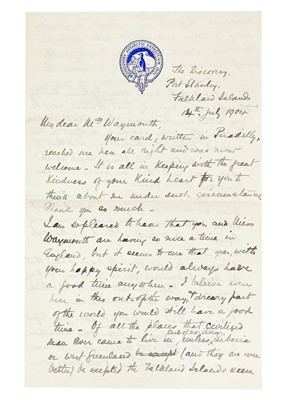 The Discovery,
Port Stanley,
Falkland Islands
14th July 1904
My dear Mrs Waymouth,
Your card, written in Picadilly,
reached me here all right and was most
welcome. It is all in keeping with the great
kindness of your kind heart for you to
think about me under such circumstances
Thank you so much.
I am so pleased to hear that you and Miss
Waymouth are having so nice a time in
England, but it seems to me that you, with
your happy spirit, would always have
a good time anywhere. I believe even
here in this out of the way, & dreary part
of the world you would still have a good
time. Of all the places that civilized
man ever came to live in, unless Siberia
or west Greenland be except (and they are even
better) be excepted the Falkland Islands seem